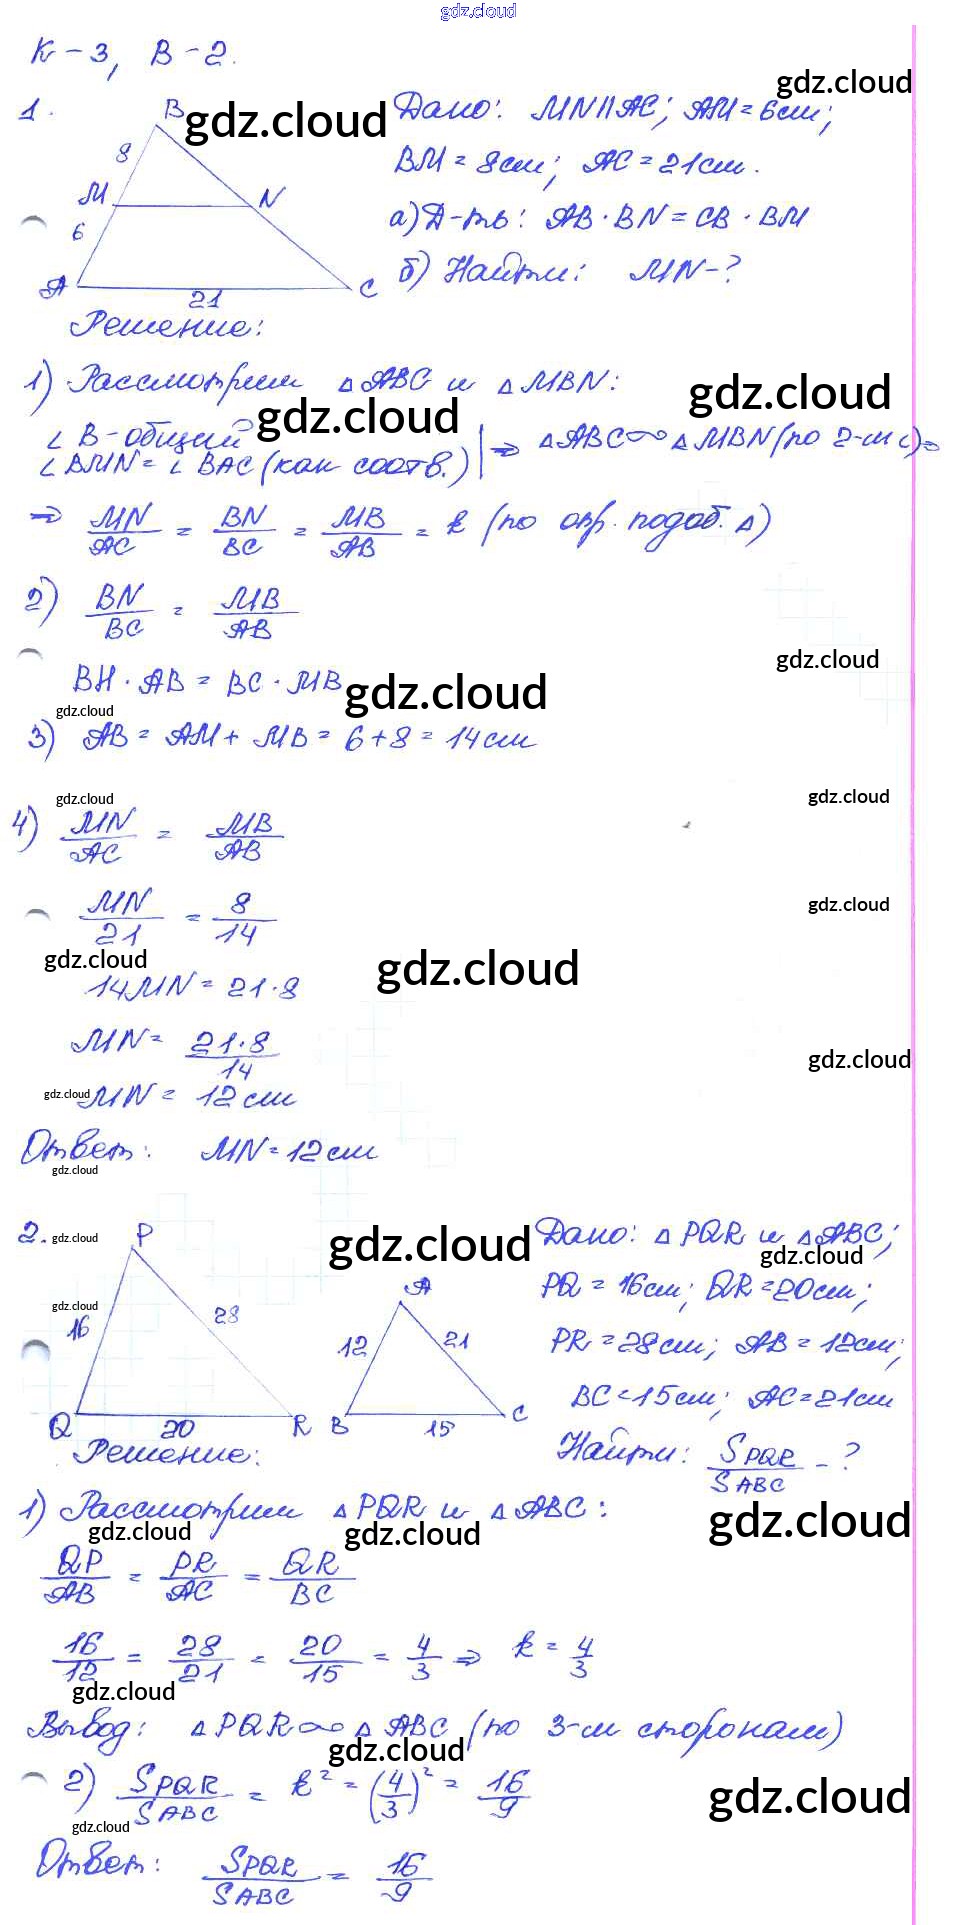 gdz.cloud
К-3, В-2.
gdz.cloud
1.
B
gdz.cloud
Дано: MN||AC; AM = 6см;
8
BM = 8см; AC = 21см.
M
N
а) Д-ть: AB · BN = CB · BM
6
б) Найти: MN-?
A
21
C
Решение:
1) Рассмотрим △ABC и △MBN:
gdz.cloud
gdz.cloud
∠B-общий
∠BMN = ∠BAC (как соотв.) | ⇒ △ABC ∞ △MBN (по 2-м ∠) ⇒
⇒ MN/AC = BN/BC = MB/AB = k (по опр. подоб. △)
2) BN/BC = MB/AB
gdz.cloud
BH · AB = BC · MB
gdz.cloud
gdz.cloud
3) AB = AM + MB = 6 + 8 = 14 см
gdz.cloud
gdz.cloud
4) MN/AC = MB/AB
gdz.cloud
MN/21 = 8/14
gdz.cloud
gdz.cloud
14MN = 21·8
MN = 21·8/14
gdz.cloud
gdz.cloud
MN = 12 см
Ответ: MN = 12 см
gdz.cloud
2.
gdz.cloud
P
gdz.cloud
Дано: △PQR и △ABC;
gdz.cloud
A
PQ = 16см; QR = 20см;
gdz.cloud
16
28
12
21
PR = 28см; AB = 12см;
BC = 15см; AC = 21см
Q
20
R
B
15
C
Найти: SPQR/SABC - ?
Решение:
1) Рассмотрим △PQR и △ABC:
gdz.cloud
gdz.cloud
gdz.cloud
QP/AB = PR/AC = QR/BC
16/12 = 28/21 = 20/15 = 4/3 ⇒ k = 4/3
gdz.cloud
Вывод: △PQR ∞ △ABC (по 3-м сторонам)
gdz.cloud
2) SPQR/SABC = k² = (4/3)² = 16/9
gdz.cloud
gdz.cloud
Ответ: SPQR/SABC = 16/9